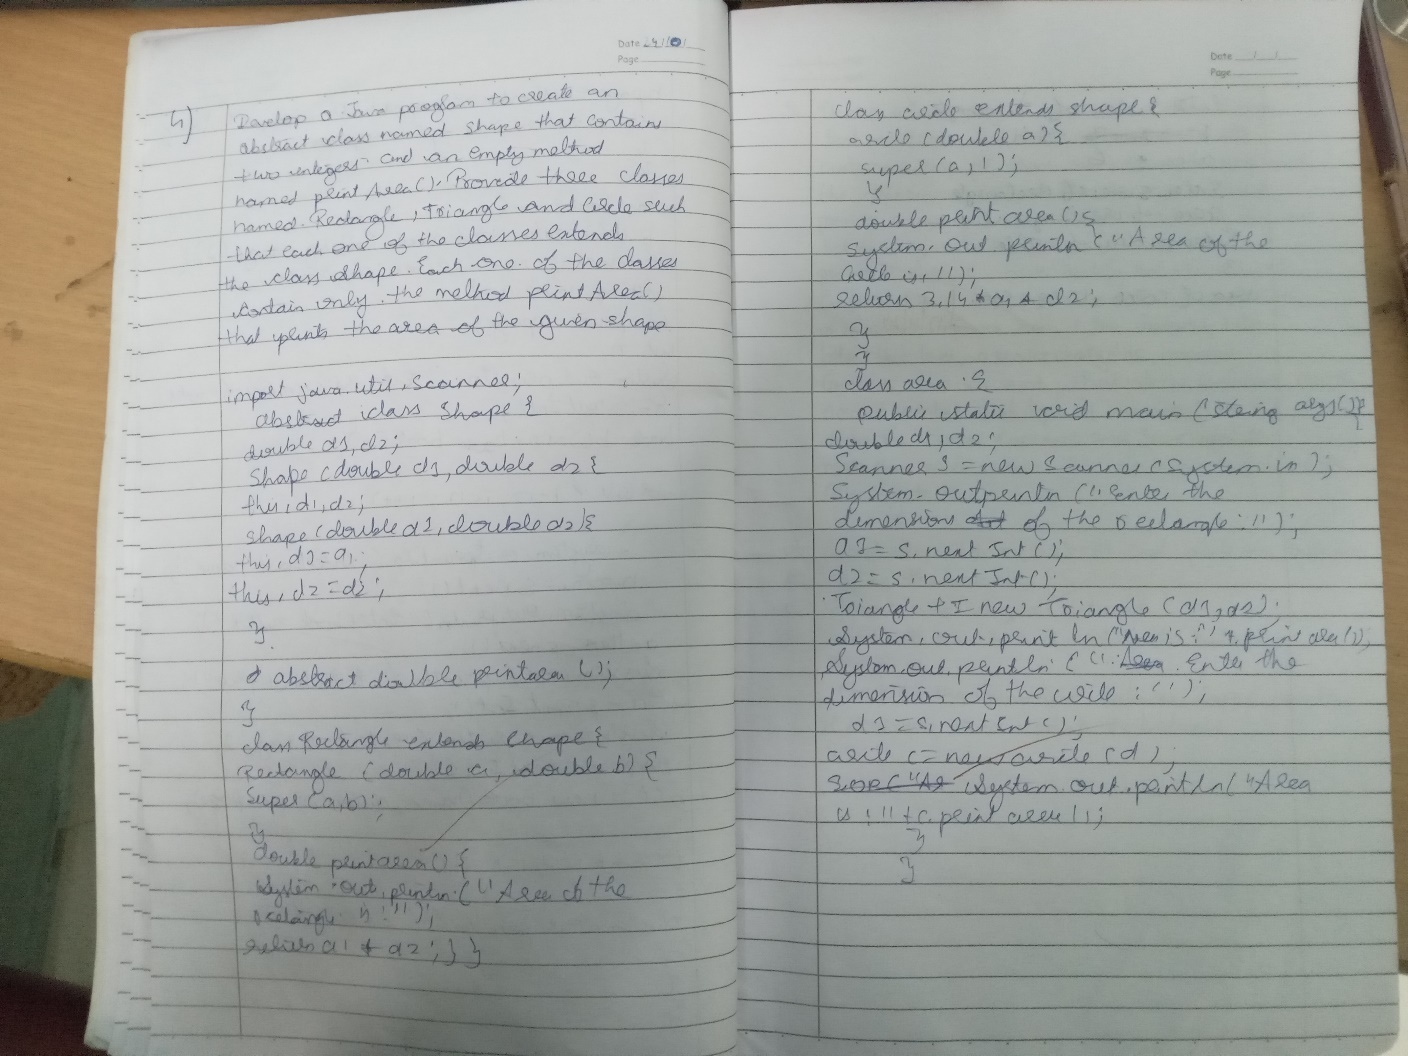 Date 24/10/
Page
4)
Develop a Java program to create an
abstract class named shape that contains
two integers and an empty method
named print Area(). Provide three classes
named Rectangle, Triangle and Circle such
that each one of the classes extends
the class shape. Each one of the classes
contain only the method print Area()
that prints the area of the given shape
import java.util.Scanner;
abstract class Shape {
double d1, d2;
Shape (double d1, double d2 {
this, d1, d2;
shape (double d1, double d2) {
this, d1 = a1;
this, d2 = d2;
}
abstract double printarea ();
}
class Rectangle extends shape {
Rectangle (double a, double b) {
Super (a,b);
}
double printarea () {
System.out.println ("Area of the
rectangle is : ");
return d1 * d2; } }
Date
Page
class circle extends shape {
circle (double a) {
super (a, 1);
}
double print area () {
System. out println ("Area of the
circle is, ");
return 3.14 * d1 * d2;
}
}
class area {
public static void main (string args[]) {
double d1, d2;
Scanner S = new Scanner (System.in);
System. out println ("Enter the
dimensions of the rectangle : ");
d1 = s. next Int ();
d2 = s. next Int ();
Triangle t I new Triangle (d1, d2).
System, out, print ln ("Area is : " t. print area ();
System. out. println ( " Enter the
dimension of the circle : ");
d1 = s, next Int ();
circle c = new circle (d);
System. out. println ( "Area
is : " + c. print area ();
}
}